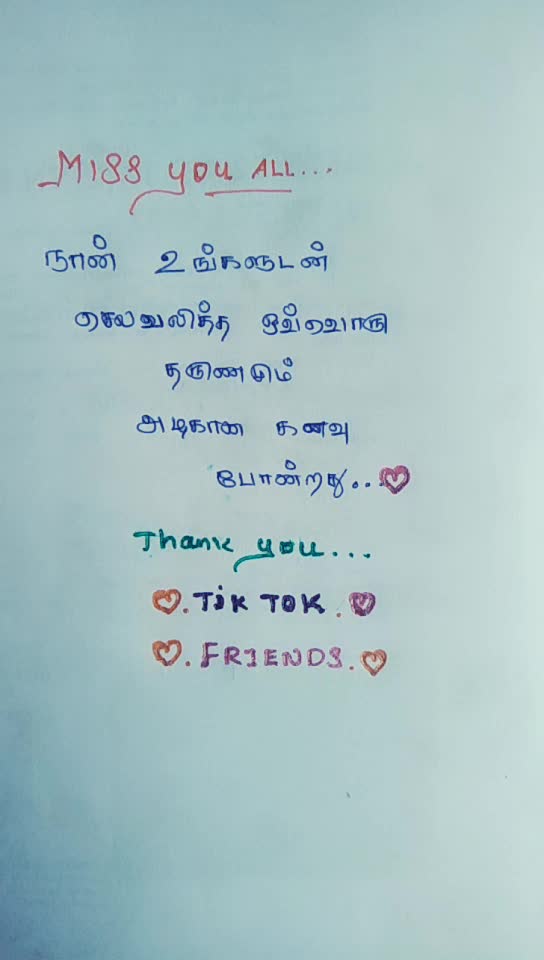 MISS you ALL...
நான் உங்களுடன்
செலவலித்த ஒவ்வொரு
தருணமும்
அழகான கனவு
போன்றது...
Thank you...
TIK TOK.
FRIENDS.